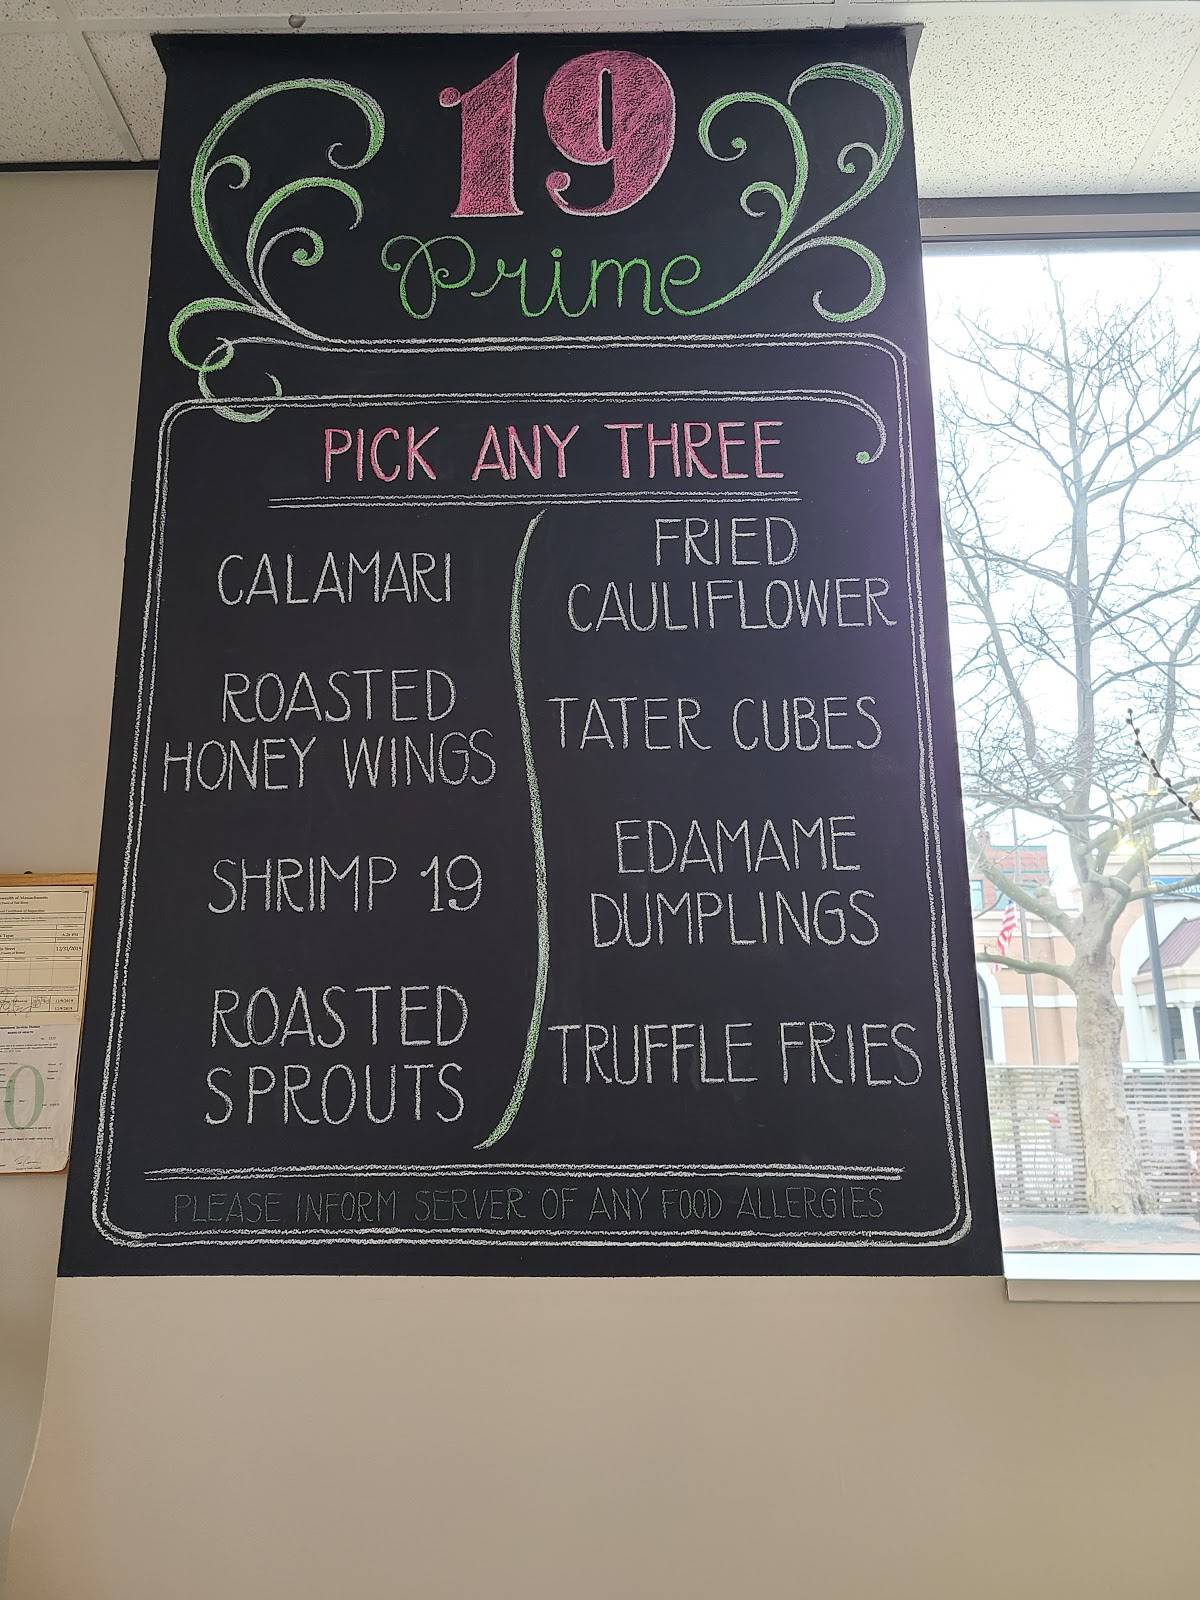 19
Prime
PICK ANY THREE
CALAMARI
ROASTED
HONEY WINGS
SHRIMP 19
ROASTED
SPROUTS
FRIED
CAULIFLOWER
TATER CUBES
EDAMAME
DUMPLINGS
TRUFFLE FRIES
PLEASE INFORM SERVER OF ANY FOOD ALLERGIES
of Massachusetts
12/31/2019